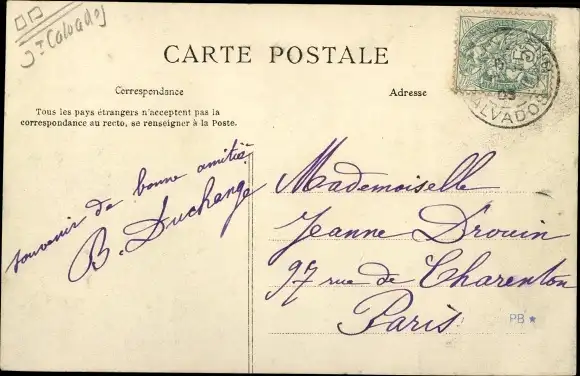 Calvados
CARTE POSTALE
Correspondance
Adresse
Tous les pays étrangers n'acceptent pas la
correspondance au recto, se renseigner à la Poste.
5
03
CALVADOS
souvenir de bonne amitié
B. Duchange
Mademoiselle
Jeanne Drouin
97 rue de Charenton
Paris
PB